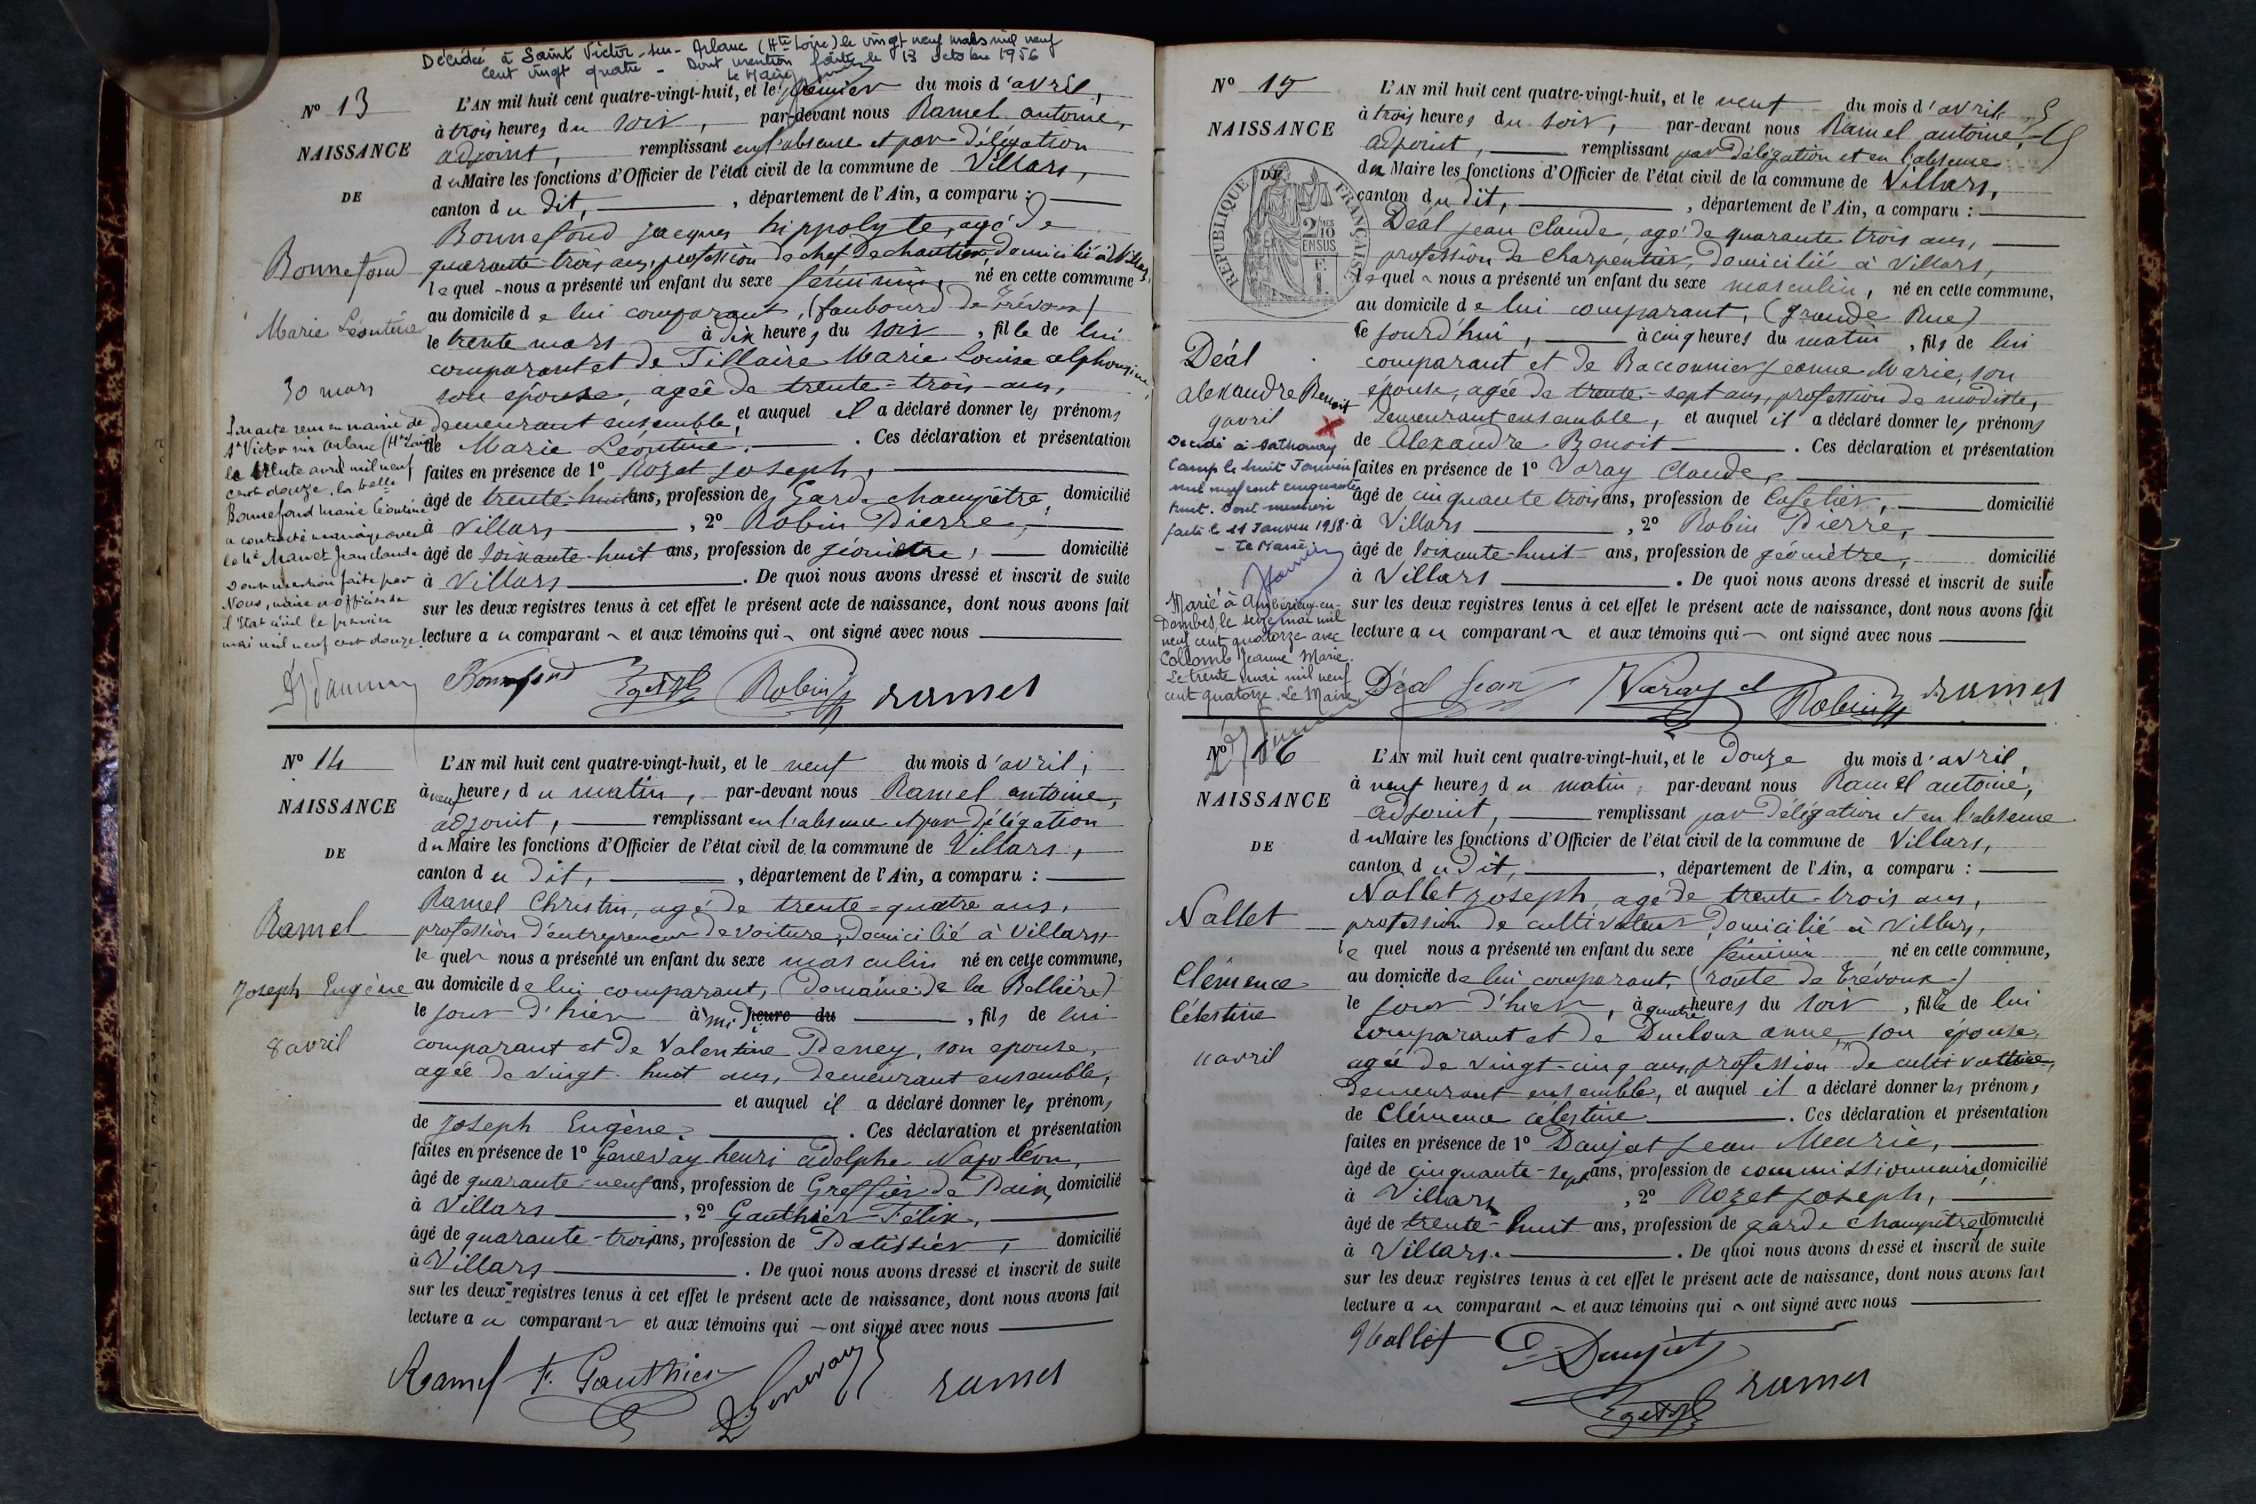 Décédée à Saint Victor-sur-Arlanc (Hte Loire) le vingt neuf mars mil neuf
cent vingt quatre - Dont mention faite le 13 octobre 1956
Le Maire
N° 13
NAISSANCE
DE
Bonnefond
Marie Léontine
30 mars
Par acte reçu en mairie de
St Victor sur Arlanc (Hte Loire)
le trente avril mil neuf
cent douze, la belle
Bonnefond Marie Léontine
a contracté mariage avec
le Sr Manet Jean Claude
Dont mention faite par
Nous, maire et officier de
l'Etat civil le premier
mai mil neuf cent douze.
L'AN mil huit cent quatre-vingt-huit, et le premier du mois d'avril,
à trois heures du soir, par-devant nous Ramel antoine,
adjoint, remplissant en l'absence et par délégation
du Maire les fonctions d'Officier de l'état civil de la commune de Villars,
canton du dit, , département de l'Ain, a comparu :
Bonnefond jacques hippolyte, agé de
quarante-trois ans, profession de chef de chantier, domicilié à Villars,
lequel nous a présenté un enfant du sexe féminin, né en cette commune
au domicile de lui comparant, (faubourd de Trévoux)
le trente mars à dix heures du soir, fille de lui
comparant et de Tillaire Marie Louise alphonsine,
son épouse, agée de trente-trois ans,
demeurant ensemble, et auquel il a déclaré donner les prénoms
de Marie Léontine. . Ces déclaration et présentation
faites en présence de 1° Rozet joseph,
âgé de trente-huit ans, profession de Garde champêtre, domicilié
à Villars , 2° Robin Pierre,
âgé de soixante-huit ans, profession de géomètre, domicilié
à Villars . De quoi nous avons dressé et inscrit de suite
sur les deux registres tenus à cet effet le présent acte de naissance, dont nous avons fait
lecture au comparant et aux témoins qui ont signé avec nous
Bonnefond Robin ramel
N° 14
NAISSANCE
DE
Ramel
Joseph Eugène
8 avril
L'AN mil huit cent quatre-vingt-huit, et le neuf du mois d'avril,
à neuf heures du matin, par-devant nous Ramel antoine,
adjoint, remplissant en l'absence et par délégation
du Maire les fonctions d'Officier de l'état civil de la commune de Villars,
canton du dit, , département de l'Ain, a comparu :
Ramel Christin, agé de trente-quatre ans,
profession d'entrepreneur de voiture, domicilié à Villars,
lequel nous a présenté un enfant du sexe masculin né en cette commune,
au domicile de lui comparant, (domaine de la Bellière)
le jour d'hier à midi heure du , fils de lui
comparant et de Valentine Deney, son epouse,
agée de vingt-huit ans, demeurant ensemble,
et auquel il a déclaré donner les prénoms
de Joseph Eugène. . Ces déclaration et présentation
faites en présence de 1° Genevay henri adolphe Napoléon,
âgé de quarante-neuf ans, profession de Greffier de Paix, domicilié
à Villars , 2° Gauthier Félix,
âgé de quarante-trois ans, profession de Patissier, domicilié
à Villars . De quoi nous avons dressé et inscrit de suite
sur les deux registres tenus à cet effet le présent acte de naissance, dont nous avons fait
lecture au comparant et aux témoins qui ont signé avec nous
Ramel F. Gauthier Genevay ramel
N° 15
NAISSANCE
DE
REPUBLIQUE FRANÇAISE
2/10 EN SUS
Déal
alexandre Benoit
9 avril
Décédé à Sathonay
Camp le huit Janvier
mil neuf cent cinquante
huit. Dont mention
faite le 11 Janvier 1958.
- Le Maire
Marié à Ambérieux-en-
Dombes, le seize mai mil
neuf cent quatorze avec
Collomb Jeanne Marie.
Le trente mai mil neuf
cent quatorze. Le Maire
L'AN mil huit cent quatre-vingt-huit, et le neuf du mois d'avril,
à trois heures du soir, par-devant nous Ramel antoine,
adjoint, remplissant par délégation et en l'absence
du Maire les fonctions d'Officier de l'état civil de la commune de Villars,
canton du dit, , département de l'Ain, a comparu :
Déal jean Claude, agé de quarante trois ans,
profession de Charpentier, domicilié à Villars,
lequel nous a présenté un enfant du sexe masculin, né en cette commune,
au domicile de lui comparant, (grande Rue)
le jourd'hui, à cinq heures du matin, fils de lui
comparant et de Racconnier Jeanne Marie, son
épouse, agée de trente-sept ans, profession de modiste,
demeurant ensemble, et auquel il a déclaré donner les prénoms
de Alexandre Benoit . Ces déclaration et présentation
faites en présence de 1° Varay Claude,
âgé de cinquante trois ans, profession de Cafetier, domicilié
à Villars , 2° Robin Pierre,
âgé de soixante-huit ans, profession de géomètre, domicilié
à Villars . De quoi nous avons dressé et inscrit de suite
sur les deux registres tenus à cet effet le présent acte de naissance, dont nous avons fait
lecture au comparant et aux témoins qui ont signé avec nous
Déal Jean Varay Robin ramel
N° 16
NAISSANCE
DE
Nallet
Clémence
Célestine
11 avril
L'AN mil huit cent quatre-vingt-huit, et le Douze du mois d'avril,
à neuf heures du matin, par-devant nous Ramel antoine,
adjoint, remplissant par délégation et en l'absence
du Maire les fonctions d'Officier de l'état civil de la commune de Villars,
canton du dit, , département de l'Ain, a comparu :
Nallet joseph, agé de trente-trois ans,
profession de cultivateur, domicilié à Villars,
lequel nous a présenté un enfant du sexe féminin né en cette commune,
au domicile de lui comparant, (route de Trévoux)
le jour d'hier, à quatre heures du soir, fille de lui
comparant et de Ducloux anne, son epouse,
agée de vingt-cinq ans, profession de cultivatrice,
demeurant ensemble, et auquel il a déclaré donner les prénoms
de Clémence célestine . Ces déclaration et présentation
faites en présence de 1° Daujat Jean Marie,
âgé de cinquante-sept ans, profession de commissionnaire, domicilié
à Villars , 2° Rozet joseph,
âgé de trente-huit ans, profession de garde champêtre, domicilié
à Villars. . De quoi nous avons dressé et inscrit de suite
sur les deux registres tenus à cet effet le présent acte de naissance, dont nous avons fait
lecture au comparant et aux témoins qui ont signé avec nous
Nallet Daujat
ramel